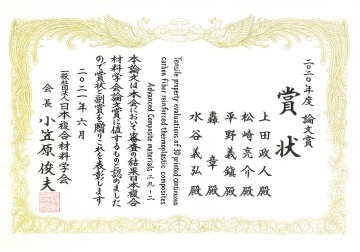 二〇二〇年度 論文賞
賞状
上田政人殿
松﨑亮介殿
平野義鎭殿
轟章殿
水谷義弘殿
Tensile property evaluations of 3D printed continuous
carbon fiber reinforced thermoplastic composites
Advanced Composite materials 二九-一
本論文は本会において審査の結果日本複合
材料学会論文賞に値するものと認めました
ので賞状と副賞を贈りこれを表彰します
二〇二一年六月
一般社団法人日本複合材料学会
会長 小笠原俊夫